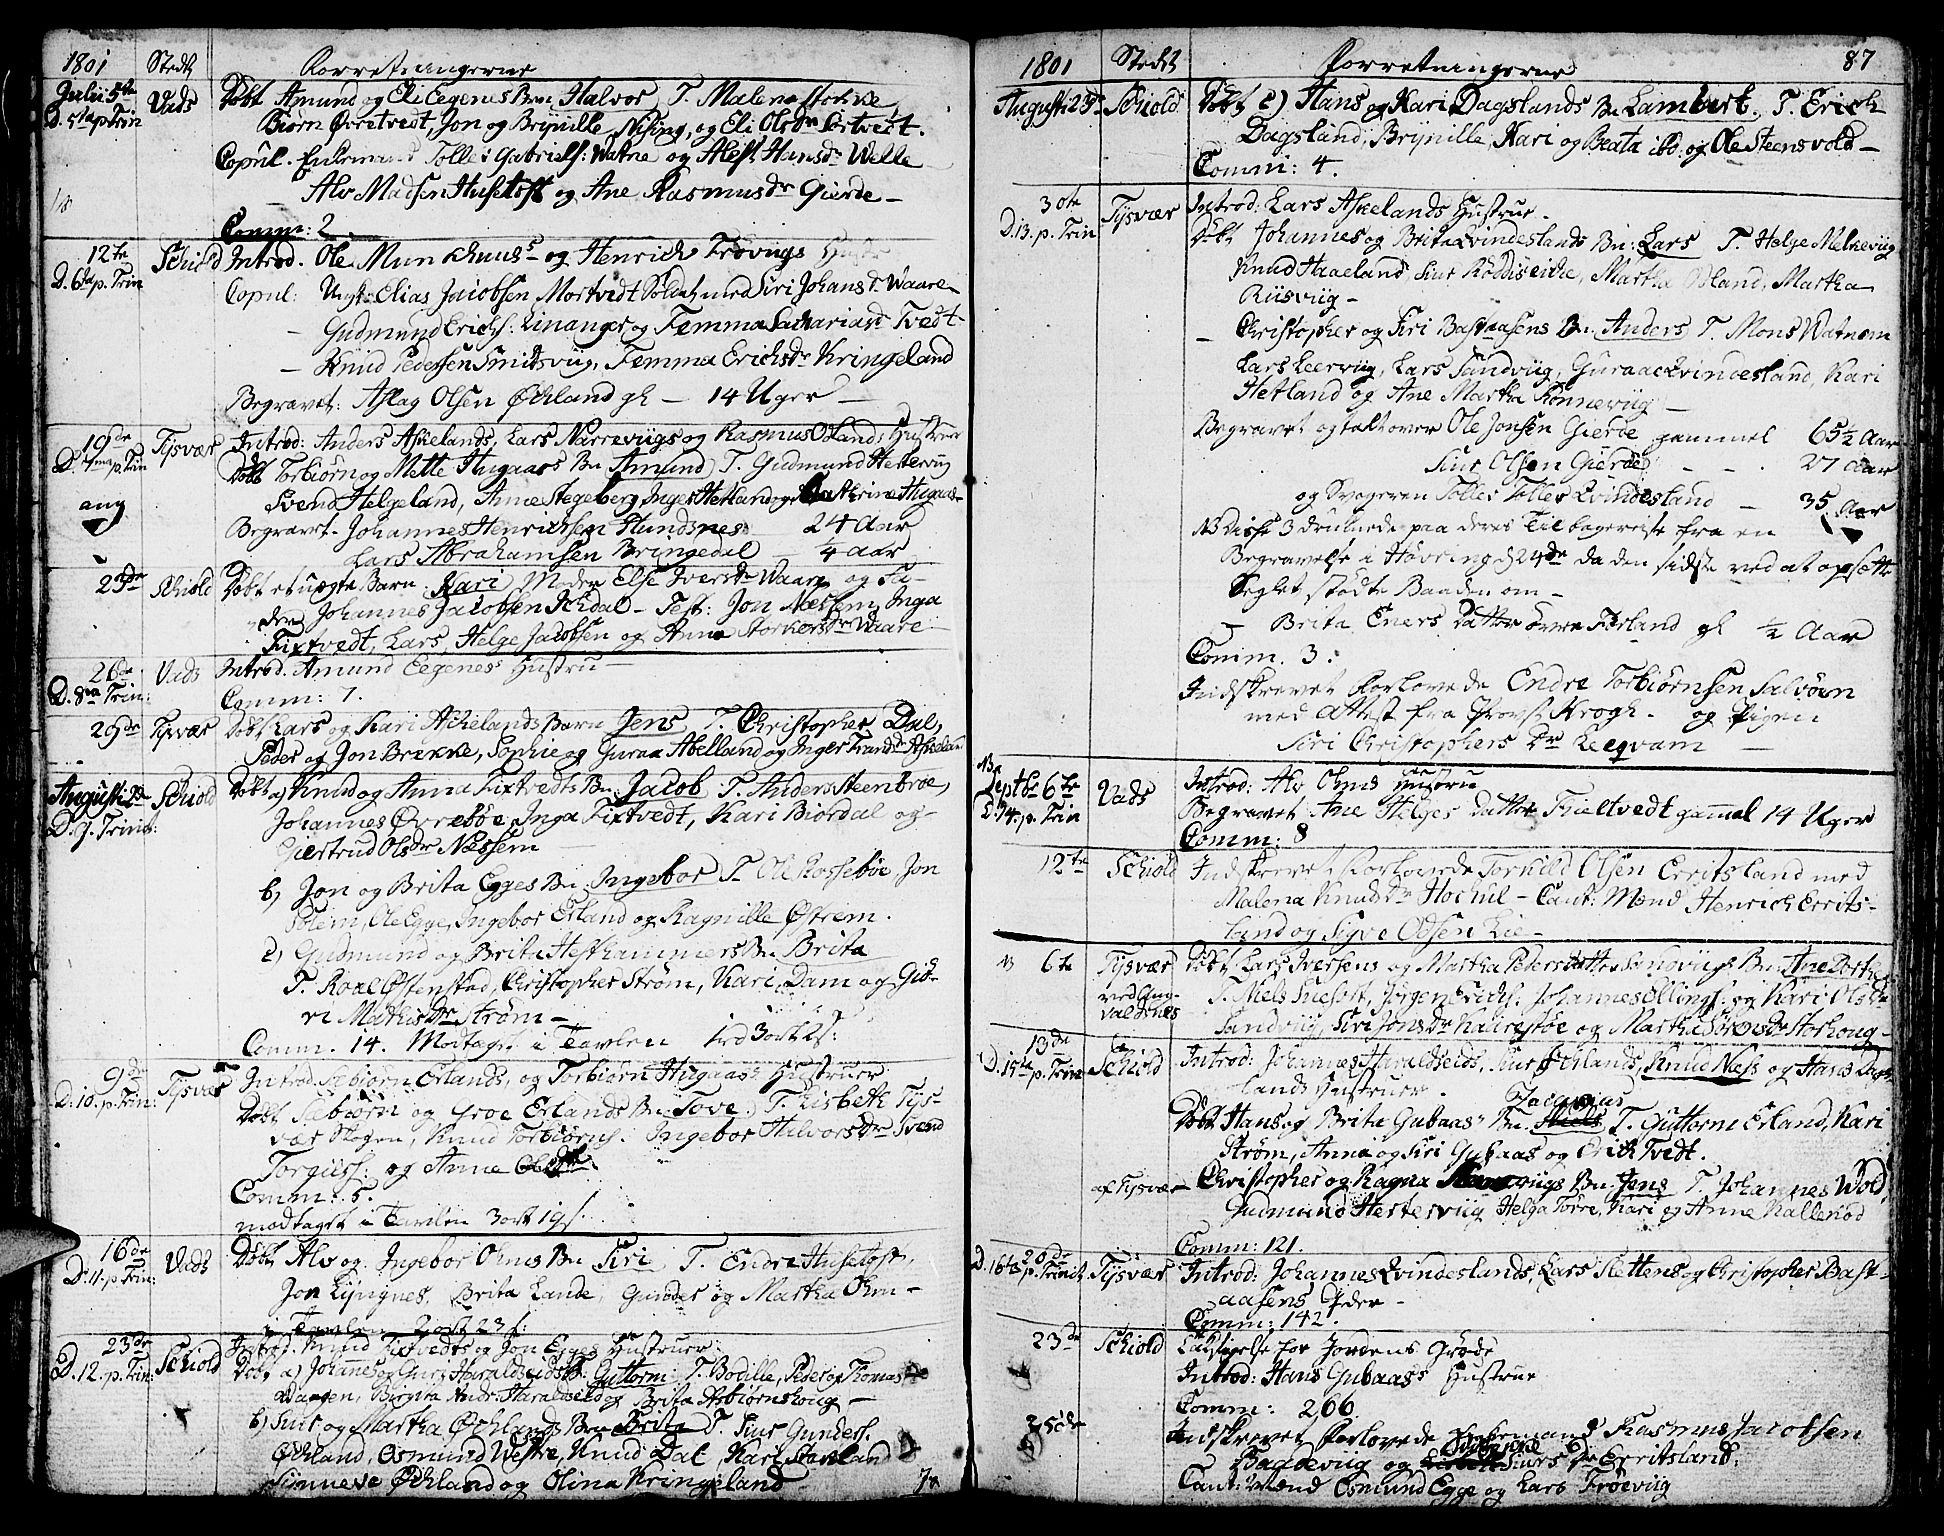 1801 Stedt Forretningerne
Julii 5te Vads Døbt Amund og Eli Eegenes Bn Halvor T. Malena Storkke,
D. 5ta p. Trin Biørn Øvretvedt, Jon og Brynille Nising, og Eli Olsdr Sortvedt.
Copul. Enkemand Tolle Gabriels: Watne og Ales Hansdr Welle
Alv Madsen Husetoft og Ane Rasmusdr Gierde –
Comm: 2
12te Schiold Introd. Ole Munkhuus og Henrich Frøvigs Hustr
D. 6ta p. Trin Copul: Ungk: Elias Jacobsen Mortvedt Soldat med Siri Johansd. Waare
– Gudmund Erichs: Linanger og Femma Sachariasd Tvedt
– Knud Pedersen Smidsviig, Femma Erichsdr Kringeland
Begravet: Aslag Olsen Øckland gl – 14 Uger –
19de Tysvær Introd: Anders Askelands, Lars Narreviigs og Rasmus Odlands Hustruer
D. 7ma p. Trin Døbt Torbiørn og Mette Hugaas Bn Amund T. Gudmund Hesteviig
ang Svend Helgeland, Anne Stegeberg, Inger Hetland og Cathrine Hugaas
Begravet. Johannes Henrichsen Hundsnes 24 Aar
Lars Abrahamsen Bringedal – 4 aar
23de Schiold Døbt et uægte Barn Kari, Moder Else Iversdr Waare og Fa-
der Johannes Jacobsen Schdal – Test: Jon Nessem, Inga
Tixtvedt, Lars, Helge Jacobsen og Anna Storkersdr Waare
26de Vads Introd. Amund Eegenes Hustru –
D. 8va Trin: Comm: 7.
29de Tysvær Døbt Lars og Kari Askelands Barn Jens T. Christopher Dal,
Peder og Jon Brekke, Sophie og Guraa Abelland og Inger Transdr Askeland
Augusti 2de Schiold Døbt a) Knud og Anna Tixtvedts Bn. Jacob T. Anders Steenbroe,
D. 9. Trinit: Johannes Øvrebøe, Inga Tixtvedt, Kari Biordal og
Giertrud Olsdr Nessem –
b) Jon og Brita Egges Bn. Ingebor T. Ole Rossebøe, Jon
Solem, Ole Egge, Ingebor Erland og Ragnille Østrem.
c) Gudmund og Brita Hesthammers Bn Brita
T. Roal Østenstad, Christopher Strøm, Kari Dam og Giø-
ri Mathisdr Strøm –
Comm. 14. Modtaget i Tavlen 3 ort
9de Tysvær Introd. Sæbiørn Erlands, og Torbiørn Hugaas Hustruer
D. 10. p. Trin: Døbt Sæbiørn og Groe Erlands Bn Tove. T. Lisbeth Tys-
vær Skogen, Knud Torbiørns. Ingebor Halvorsdr Svend
Torgiuss: og Anne Olsdr
Comm: 5.
modtaget i Tavlen 3 ort 19 s.
16de Vads Døbt Alv og Ingebor Ohms Bn Siri T. Endre Husetoft,
D. 11. p. Trin: Jon Lyngnes, Brita Lande, Gunder og Martha Ohm –
i Tavlen 2 ort 23 s.
23de Schiold Introd. Knud Tixtvedts og Jon Egges Hustruer.
D. 12. p. Trin: Døbt a) Johannes og Guri Haraldseids B. Guttorm T. Bodille, Peder og Thomas
Waagen, Birgita Andr. Haraldseid og Brita Asbiørnshoug –
b) Siur og Martha Øchlands Bn Brita T. Siur Gunders.
Øchland, Osmund Westre, Knud Dal, Kari Stakland
Simnese Øchland og Olina Kringeland
1801 Stedt Forretningerne 87
Augusti 23de Schiold Døbt c) Hans og Kari Dagslands Bn Lambert. T. Erich
Dagsland, Brynille, Kari og Beata ibd. og Ole Steensvold –
Comm: 4.
30te Tysvær Introd: Lars Askelands Hustrue.
D. 13. p. Trin Døbt Johannes og Brita Qvindeslands Bn: Lars T. Helge Melkeviig
Knud Haaeland, Siur Røddiseicke, Martha Odland, Martha
Riisviig –
– Christopher og Siri Bastaasens Bn. Anders T. Mons Watnem
Lars Leerviig, Lars Sandviig, Guraa Qvindesland, Kari
Hetland og Ane Martha Rønneviig –
Begravet og kast over Ole Jonsen Gierde gammel 65½ Aar
Siur Olsen Gierde – – 27 Aar
og Svogeren Tolles Tolles Qvindesland – 35 Aar
NB Disse 3 druknede paa deres Tilbagereise fra en
Begravelse i Høvring d 24de da den sidste ved at opsette
Seglet stødte Baaden om –
– Brita Eners Datter Øvre Førland gl ½ Aar
Comm. 3:
Indskrevet Forlovede Endre Torbiørnsen Salvøen
med Attest fra Provst Krogh. og Pigen
Siri Christophers Dr Leqvam –
Septbr 6te Vads Introd: Alv Ohms Hustru
D. 14. p. Trin Begravet Ane Helges Datter Fieltvedt gammel 14 Uger
Comm: 8
12te Schiold Indskrevet Forlovede Torkild Olsen Erritsland med
Malena Knudsdr Hochul – Caut: Mænd Henrich Errits-
land og Sigve Odsen Lie –
NB 6te Tysvær Døbt Lars Iversens og Martha Peders Datter Sandviigs Bn Ane Dorthe
ved Aug- T. Niels Susort, Jørgen Erichs. Johannes Ollings. og Kari Olsdr
valdsnes Sandviig, Siri Jonsdr Kairestøe og Martha Storhoug –
13de Schiold Introd: Johannes Haraldseids, Siur Øchlands, Knud Ness og Hans Dags-
D. 15ta p. Trin lands Hustruer.
Jacques
Døbt Hans og Brita Gubaas Bn. T. Guttorm Erland, Kari
Strøm, Anna og Siri Gubaas og Erich Tvedt.
af Tysvær – Christopher og Ragna viigs Bn. Jens T. Johannes Wold,
Gudmund Hesterviig Helga Torre, Kari og Anne Kallekod
Comm: 121.
20de Tysvær Introd: Johannes Qvindeslands, Lars Slettens og Christopher Bast-
D. 16ta p. Trinit aasens
Comm: 142.
23de Schiold Taksigelse for Jordens Grøde
Introd: Hans Gubaas Hustrue
Comm: 266
25de Indskrevet Forlovede Enkemand Rasmus Jacobsen
Bagdeviig og Siurs Dr Erritsland.
Caut: Mænd Osmund Egge og Lars Frøeviig